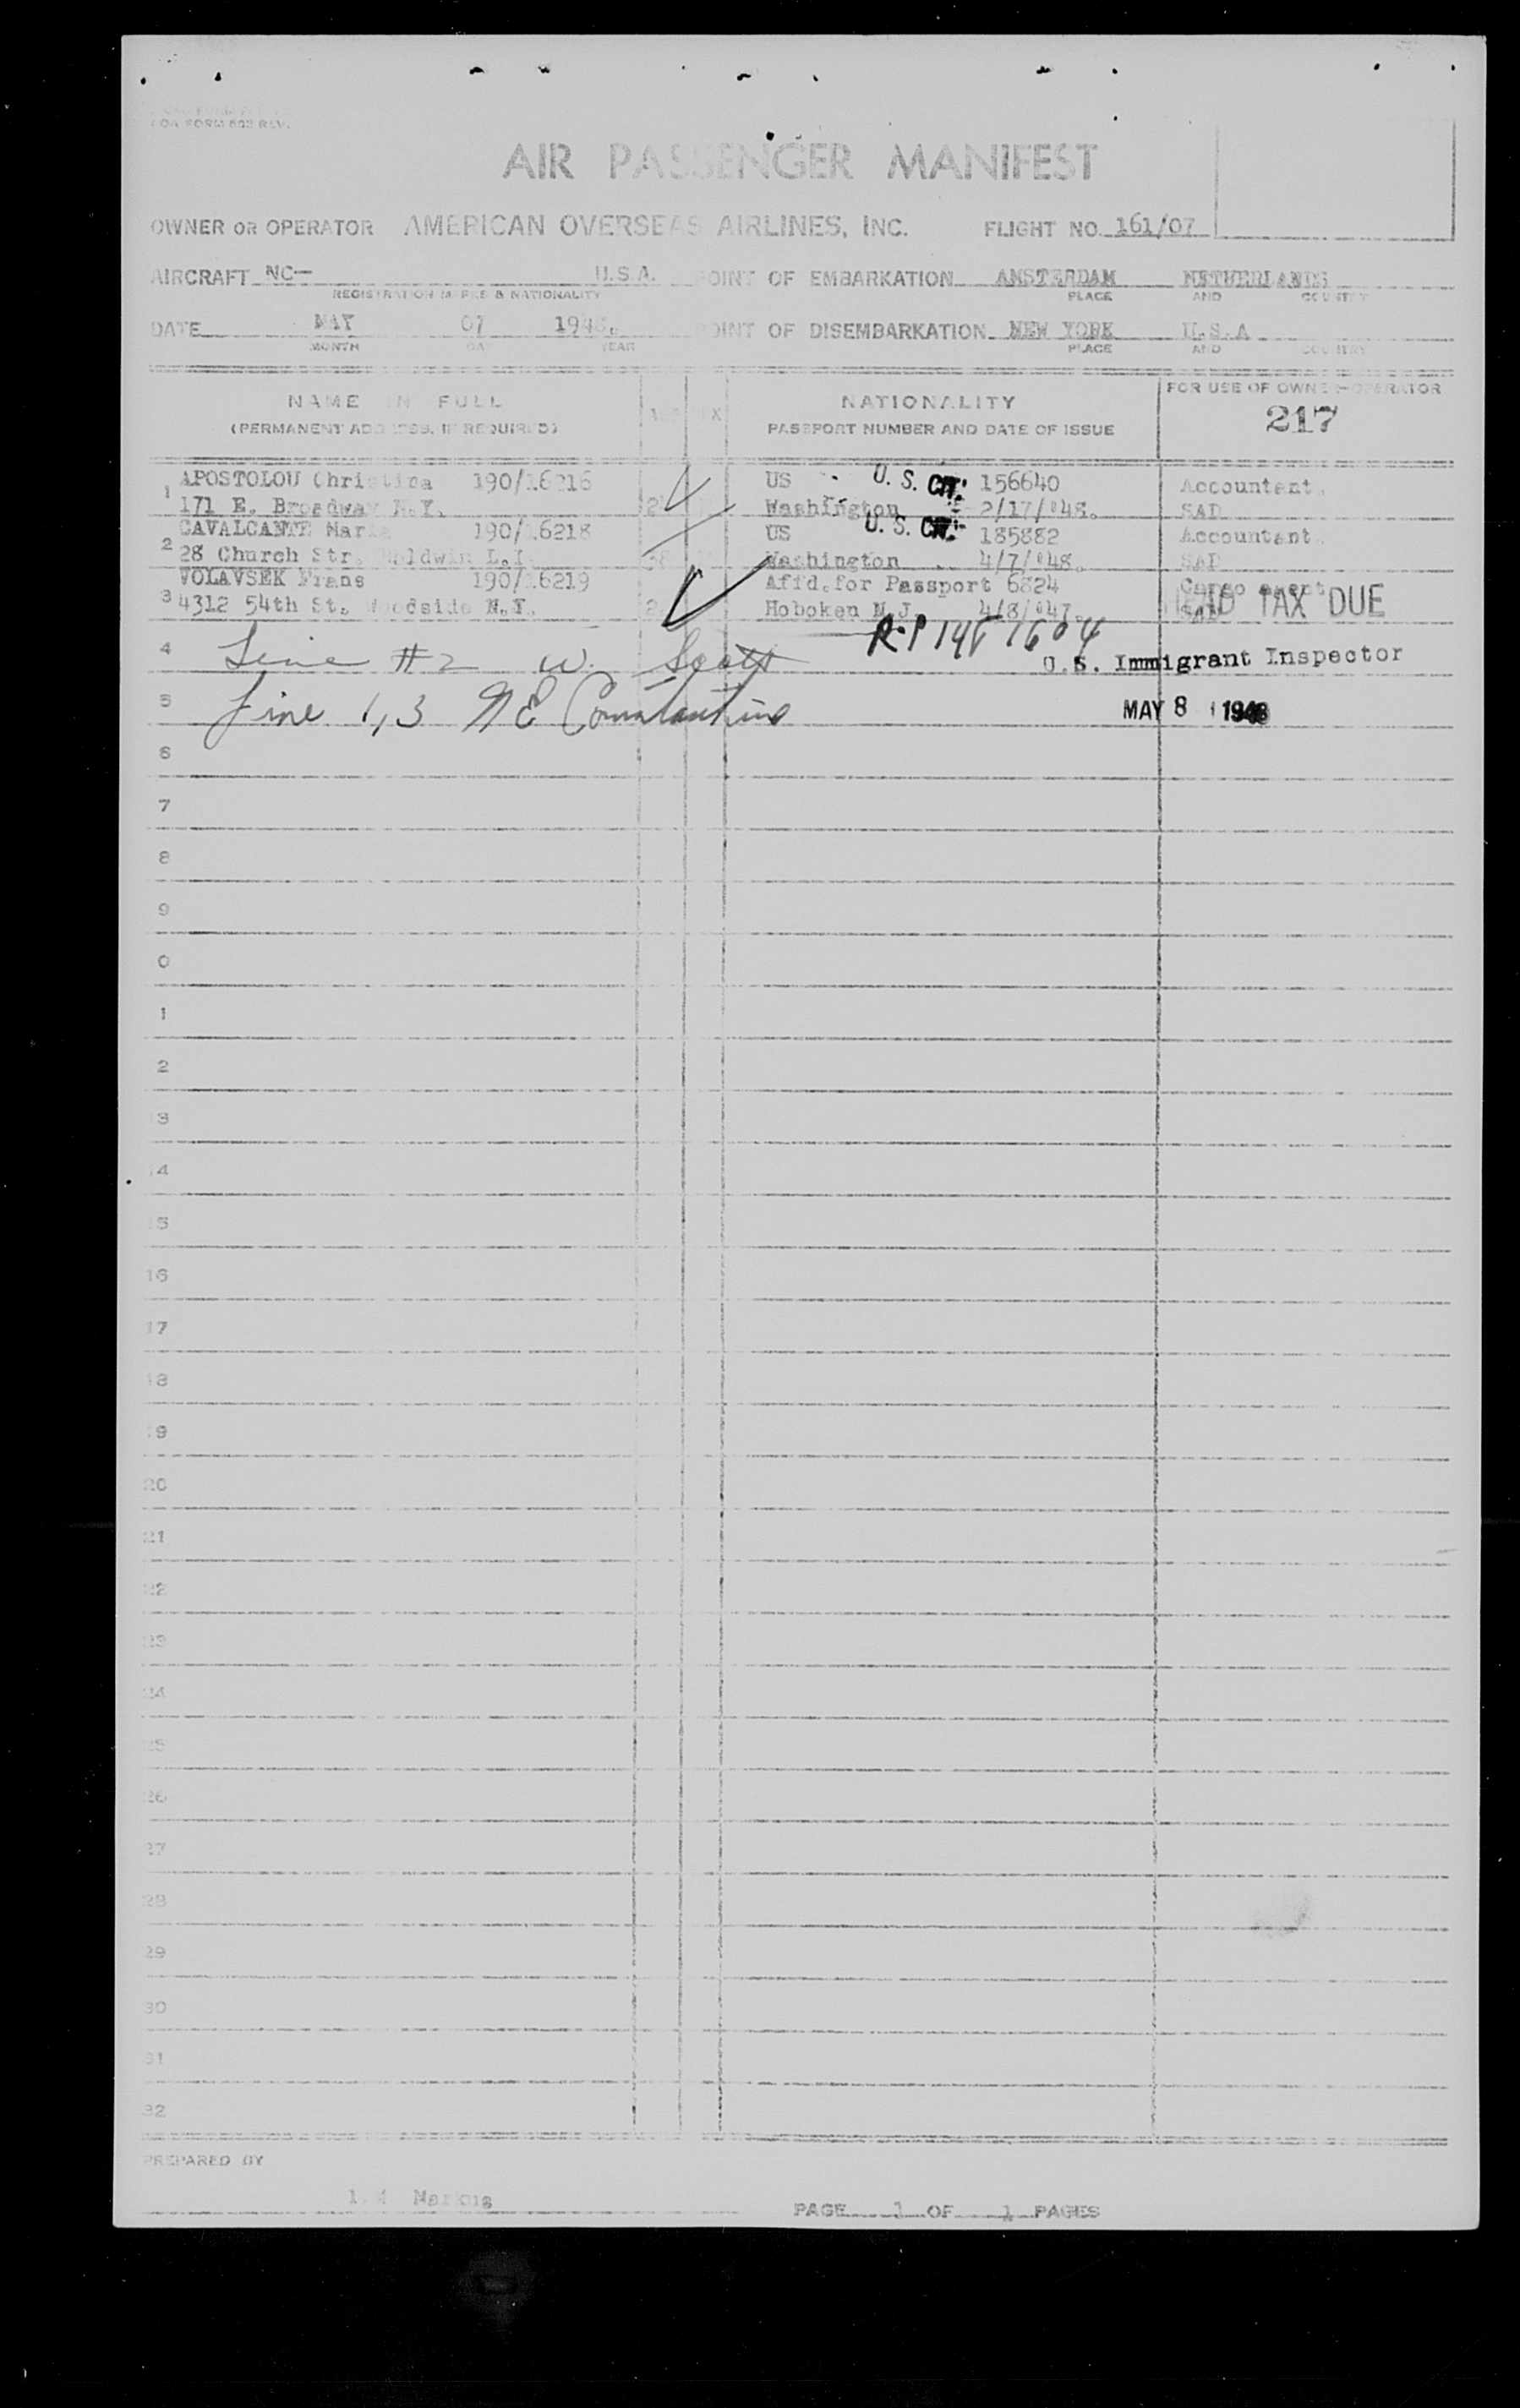 FORM 602 REV.
AIR PASSENGER MANIFEST
OWNER OR OPERATOR AMERICAN OVERSEAS AIRLINES, INC. FLIGHT NO. 161/07
AIRCRAFT NC— U.S.A. POINT OF EMBARKATION AMSTERDAM NETHERLANDS
REGISTRATION MARKS & NATIONALITY PLACE AND COUNTRY
DATE MAY 07 1948. POINT OF DISEMBARKATION NEW YORK U.S.A
MONTH DAY YEAR PLACE AND COUNTRY
NAME IN FULL NATIONALITY FOR USE OF OWNER-OPERATOR
(PERMANENT ADDRESS, IF REQUIRED) AGE SEX PASSPORT NUMBER AND DATE OF ISSUE 217
1 APOSTOLOU Christina 190/16216 US U. S. CIT. 156640 Accountant.
171 E. Broadway N.Y. Washington 2/17/'48. SAD
2 CAVALCANTE Maria 190/16218 US U. S. CIT. 185882 Accountant.
28 Church Str. Baldwin L.I. 38 Washington 4/7/'48. SAD
3 VOLAVSEK Frans 190/16219 Aff'd.for Passport 6824 Cargo agent
4312 54th St. Woodside N.Y. Hoboken N.J. 4/8/'47. SAD TAX DUE
R.P
4 Line #2 W. Scott U.S. Immigrant Inspector
5 Line 1,3 N E Constantine MAY 8 1948
6
7
8
9
0
1
2
3
14
15
16
17
18
19
20
21
22
23
24
25
26
27
28
29
30
31
32
PREPARED BY
PAGE 1 OF 1 PAGES